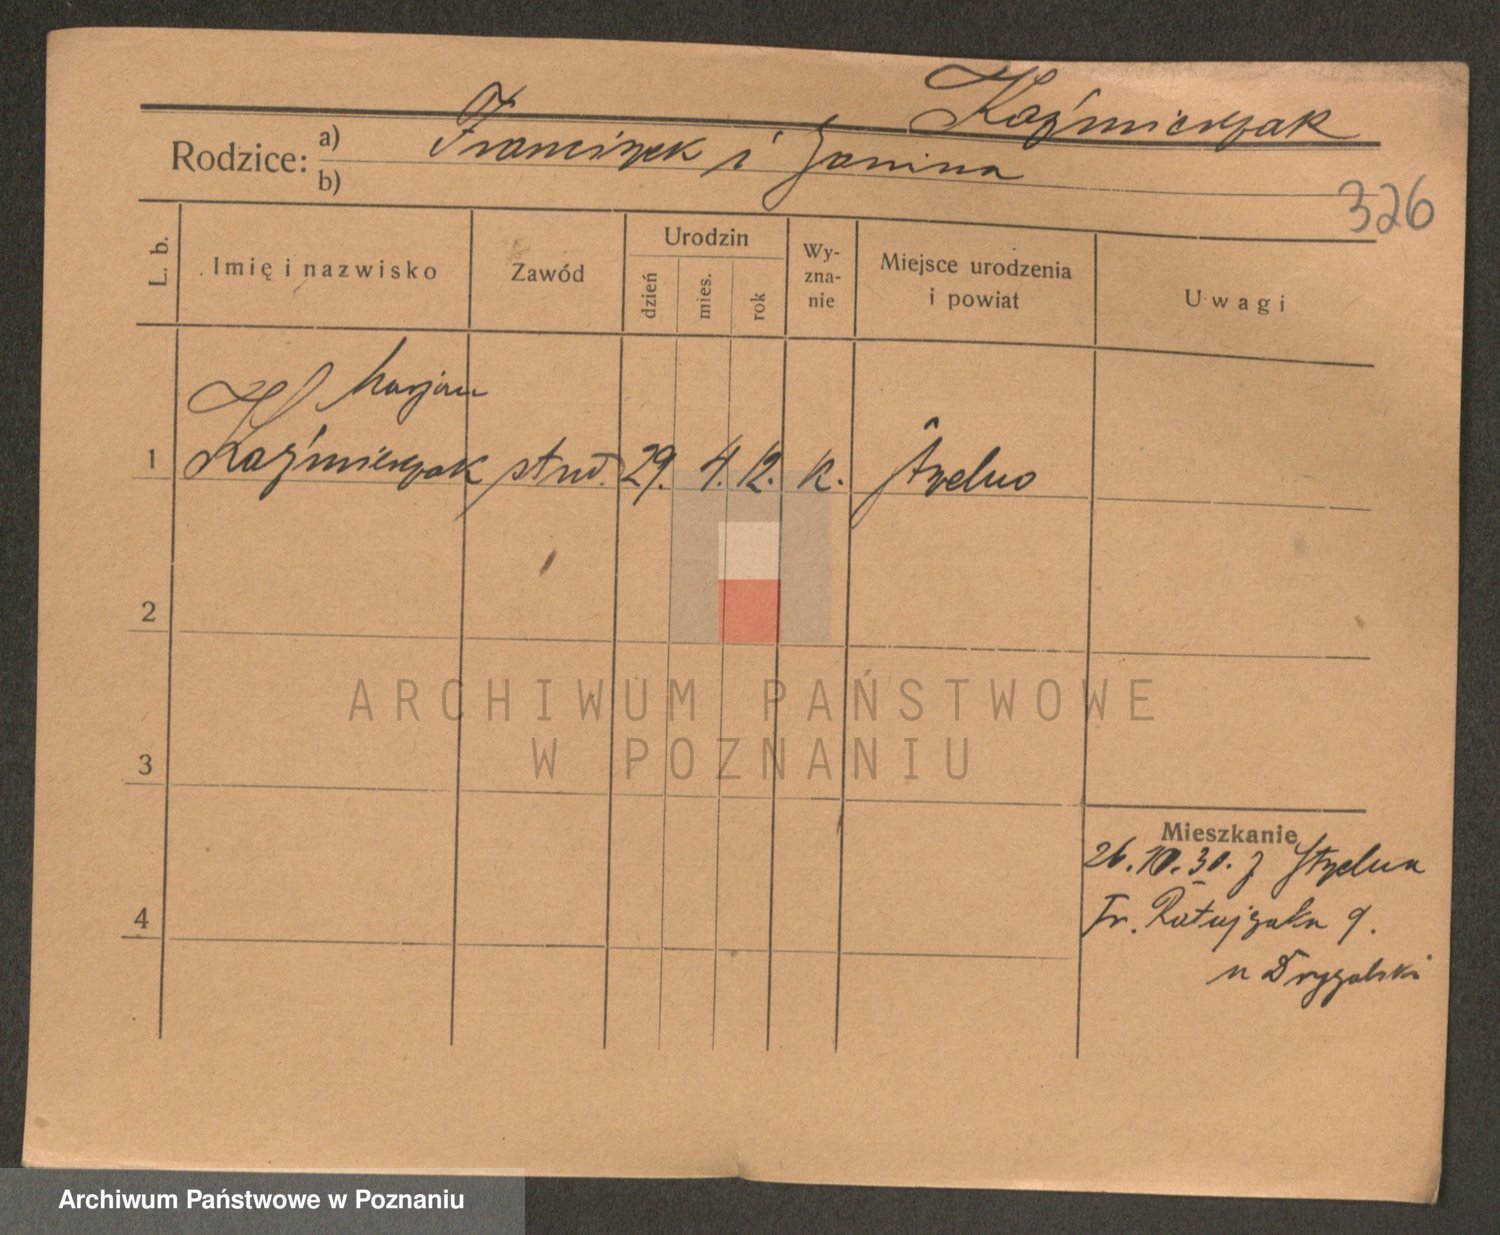 Kaźmierczak
Rodzice: a) Franciszek i Janina
b)
326
L. b.
Imię i nazwisko
Zawód
Urodzin
dzień
mies.
rok
Wy-
zna-
nie
Miejsce urodzenia
i powiat
Uwagi
Marjan
1 Kaźmierczak stud. 29. 4. 12. k. Strzelno
2
3
4
ARCHIWUM PAŃSTWOWE
W POZNANIU
Mieszkanie
26.10.30. z Strzelna
Fr. Ratajczaka 9.
u Drygalski
Archiwum Państwowe w Poznaniu